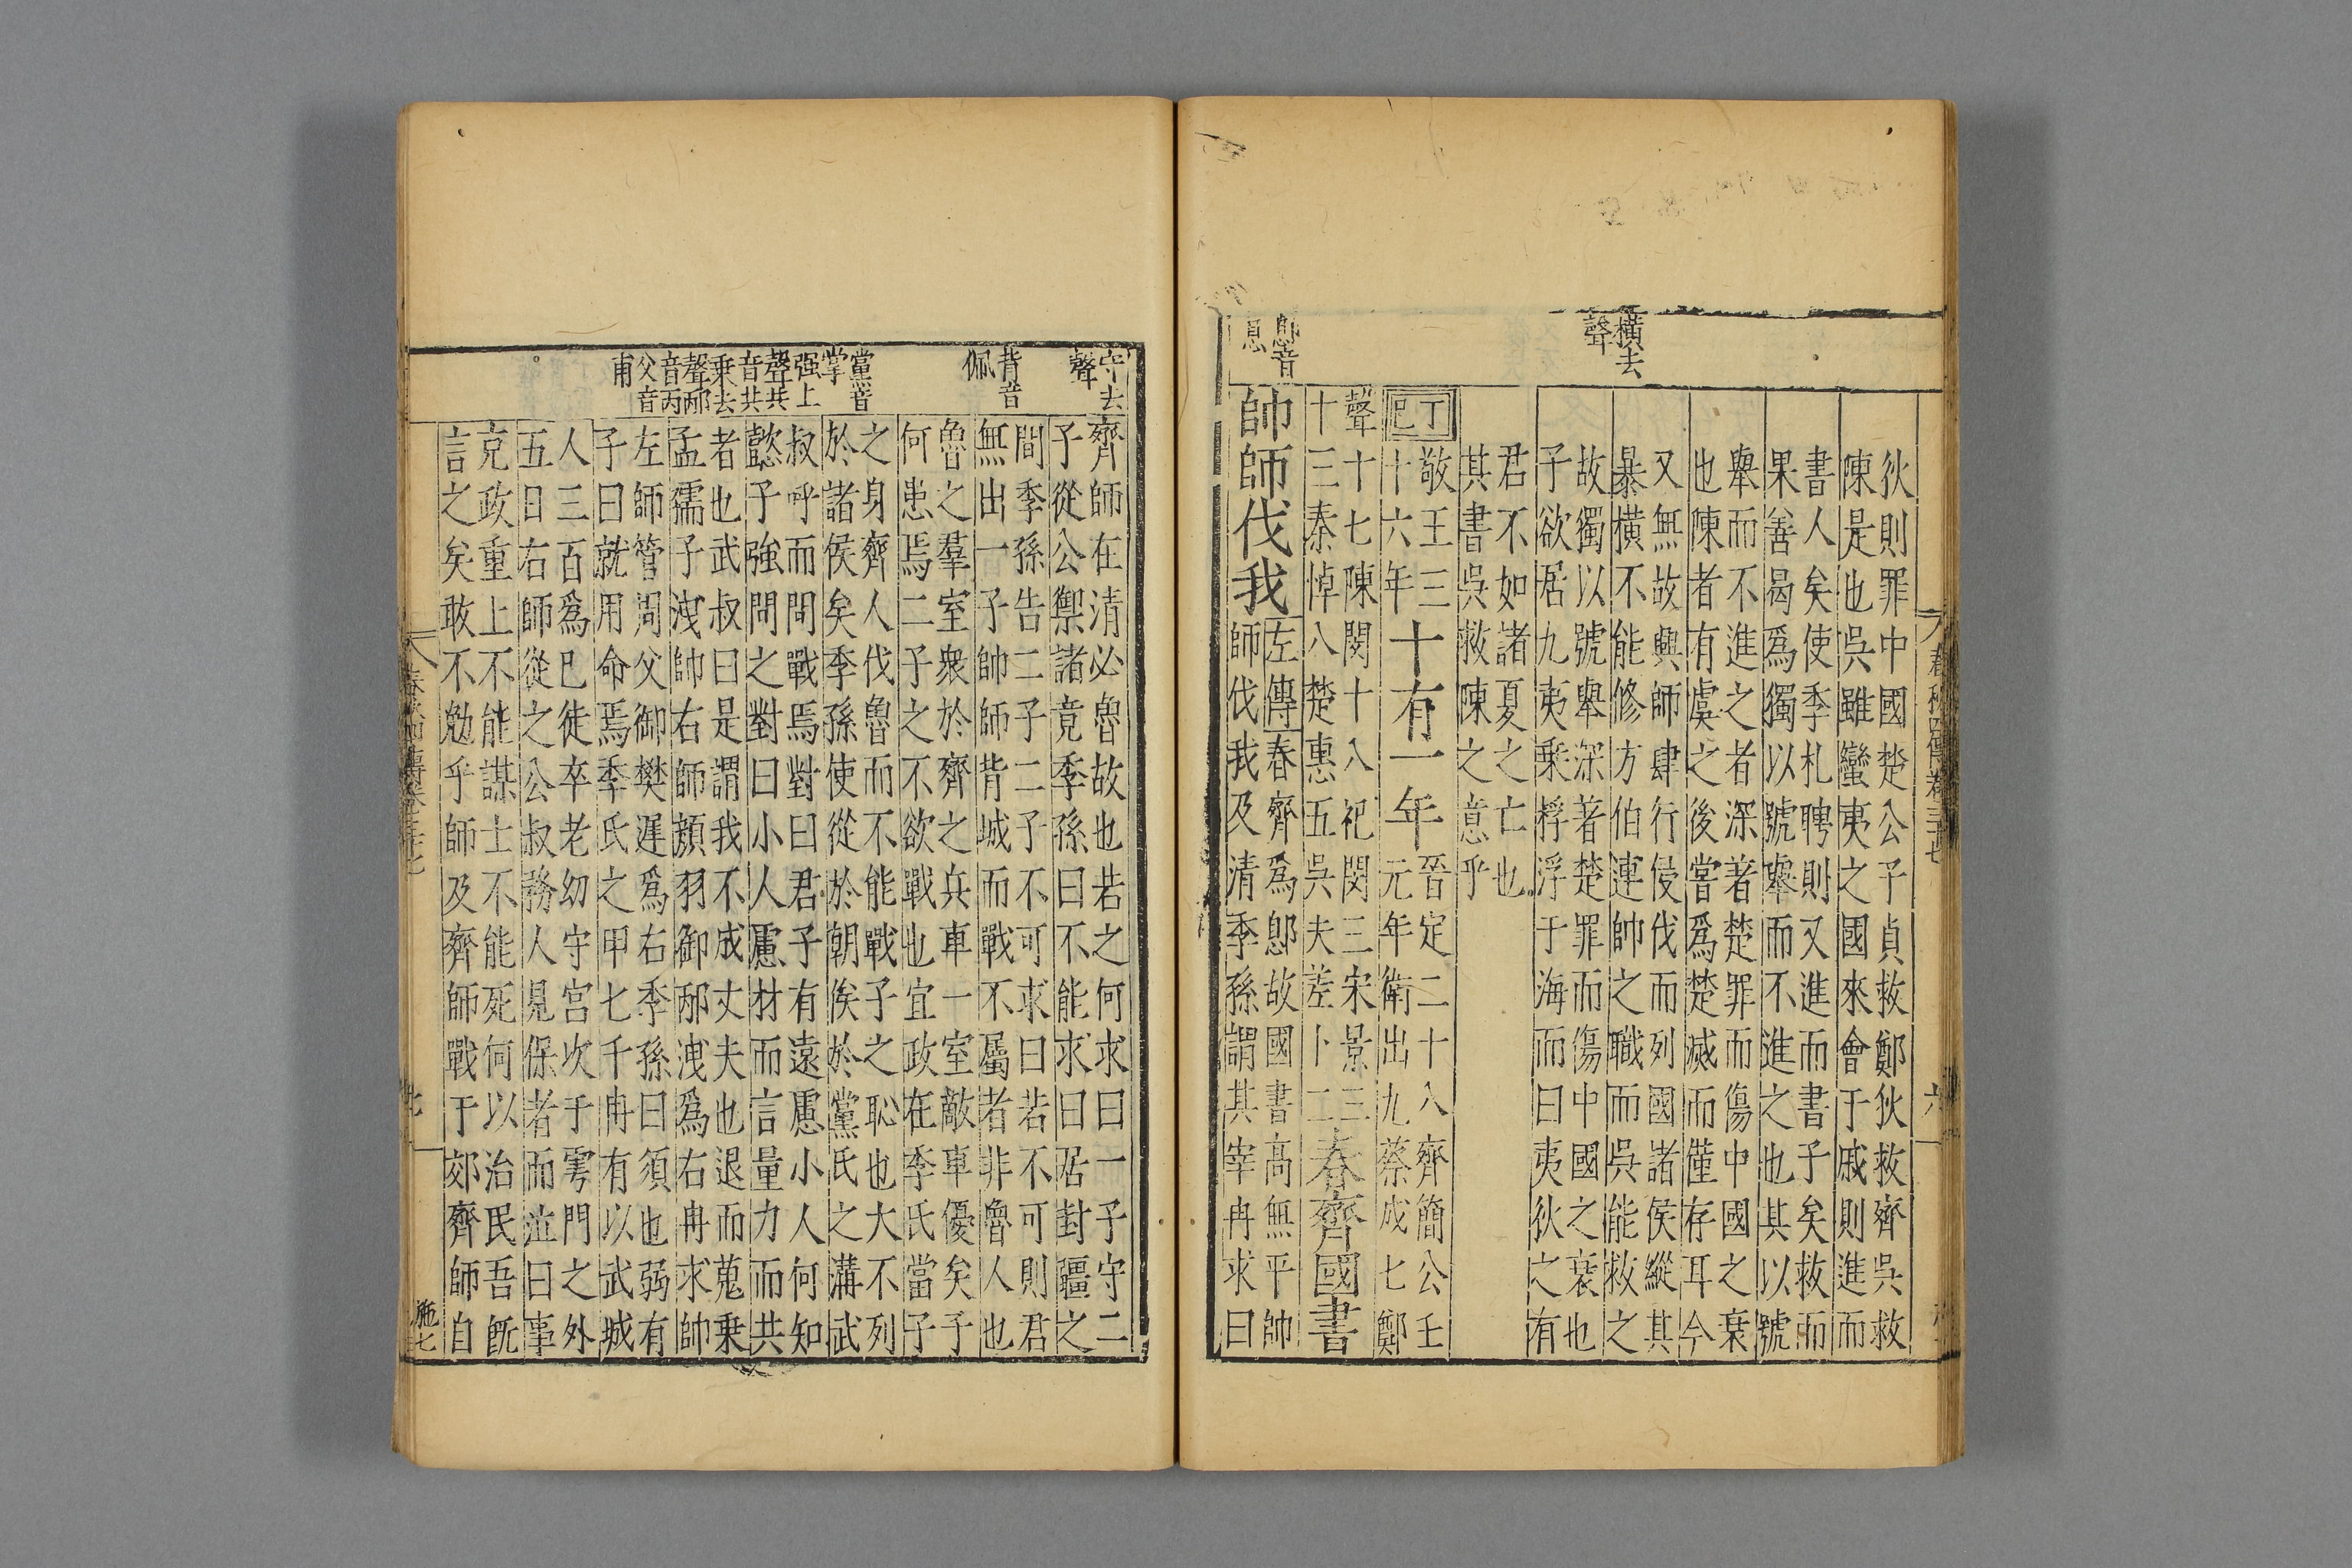 橫去
聲
郎音
息
狄則罪中國楚公子貞救鄭狄救齊吳救
陳是也吳雖蠻夷之國來會于戚則進而
書人矣使季札聘則又進而書子矣救而
果善曷爲獨以號舉而不進之也其以號
舉而不進之者深著楚罪而傷中國之衰
也陳者有虞之後嘗爲楚滅而僅存耳今
又無故興師肆行侵伐而列國諸侯縱其
暴橫不能修方伯連帥之職而吳能救之
故獨以號舉深著楚罪而傷中國之衰也
子欲居九夷乘桴浮于海而曰夷狄之有
君不如諸夏之亡也
其書吳救陳之意乎
丁巳
敬王三
十六年
十有一年
晉定二十八齊簡公壬
元年衛出九蔡成七鄭
聲十七陳閔十八杞閔三宋景三
十三秦悼八楚惠五吳夫差卜二
春齊國書
帥師伐我
左傳
春齊爲郎故國書高無平帥
師伐我及清季孫謂其宰冉求曰
春秋四傳卷三十七
六
守去
聲
背音
佩
黨音
掌
强上
聲共
音共
乘去
聲邴
音丙
父音
甫
齊師在清必魯故也若之何求曰一子守二
子從公禦諸竟季孫曰不能求曰居封疆之
間季孫告二子二子不可求曰若不可則君
無出一子帥師背城而戰不屬者非魯人也
魯之羣室衆於齊之兵車一室敵車優矣子
何患焉二子之不欲戰也宜政在季氏當子
之身齊人伐魯而不能戰子之恥也大不列
於諸侯矣季孫使從於朝俟於黨氏之溝武
叔呼而問戰焉對曰君子有遠慮小人何知
懿子強問之對曰小人慮材而言量力而共
者也武叔曰是謂我不成丈夫也退而蒐乘
孟孺子洩帥右師顏羽御邴洩爲右冉求帥
左師管周父御樊遲爲右季孫曰須也弱有
子曰就用命焉季氏之甲七千冉有以武城
人三百爲己徒卒老幼守宮次于雩門之外
五日右師從之公叔務人見保者而泣曰事
充政重上不能謀士不能死何以治民吾既
言之矣敢不勉乎師及齊師戰于郊齊師自
七